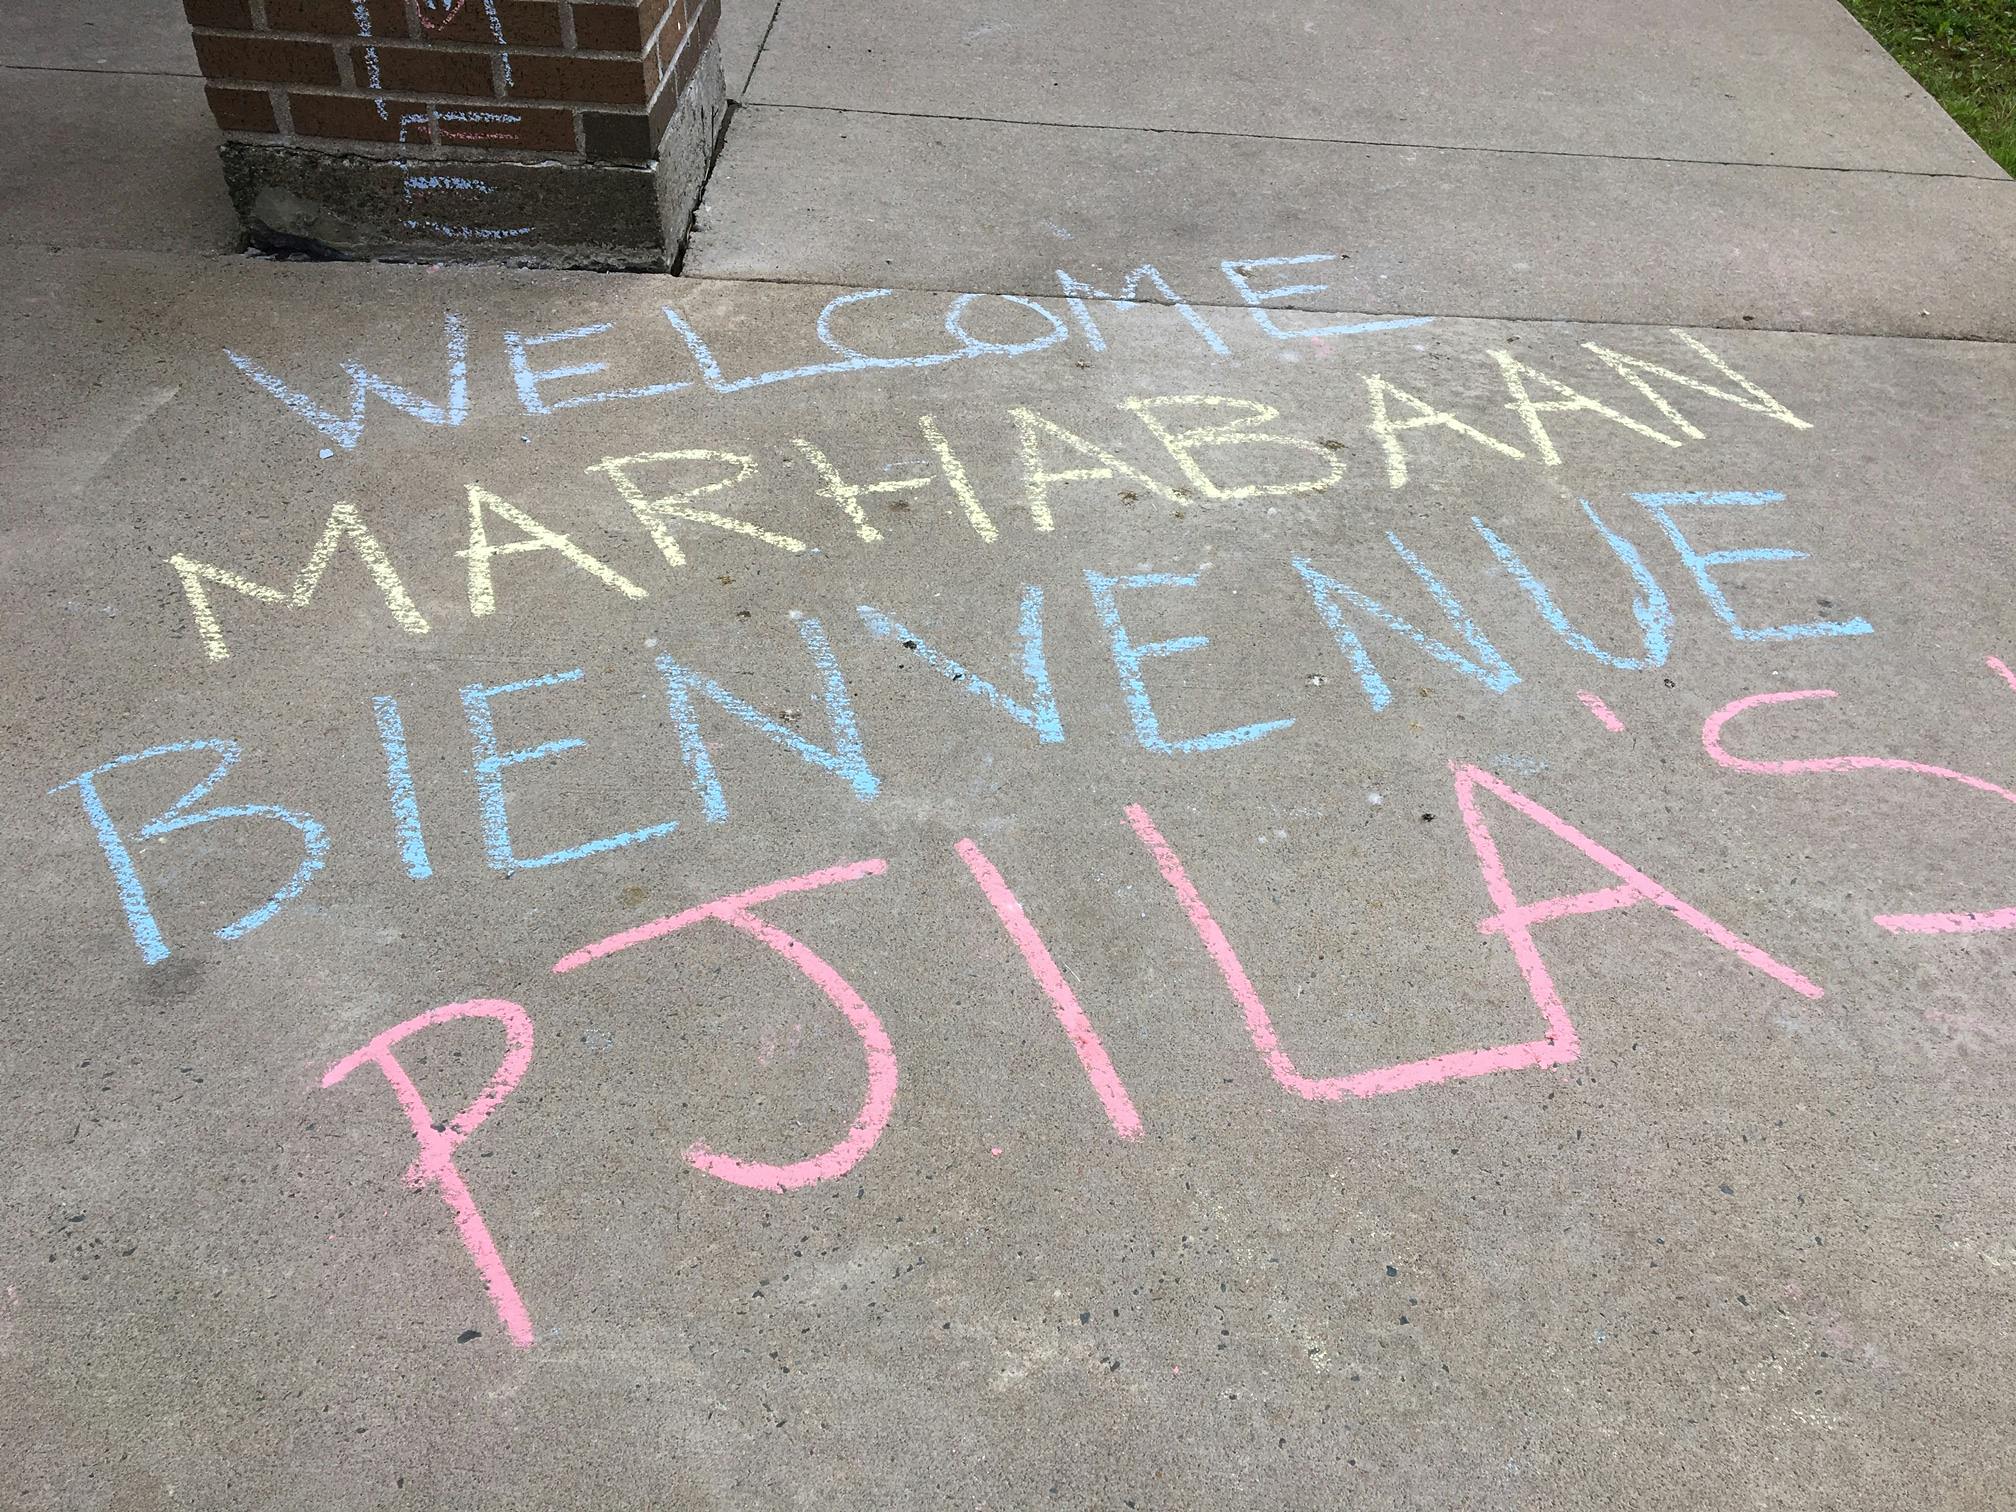 WELCOME
MARHABAAN
BIENVENUE
PJILA'S